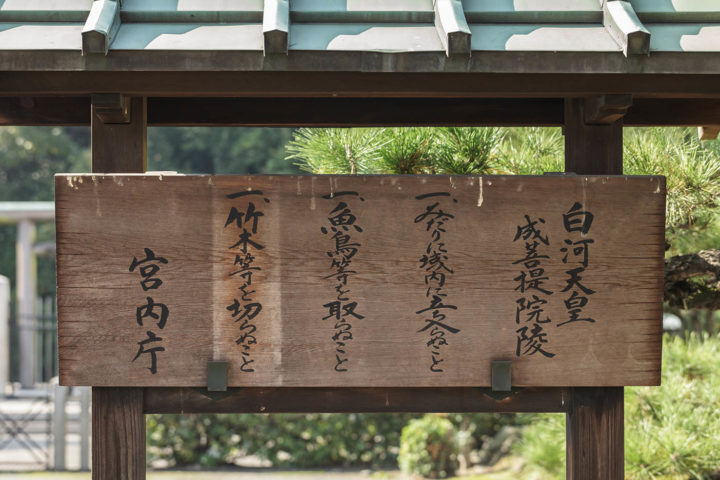 白河天皇
成菩提院陵
一、みだりに域内に立入らぬこと
一、魚鳥等を取らぬこと
一、竹木等を切らぬこと
宮内庁